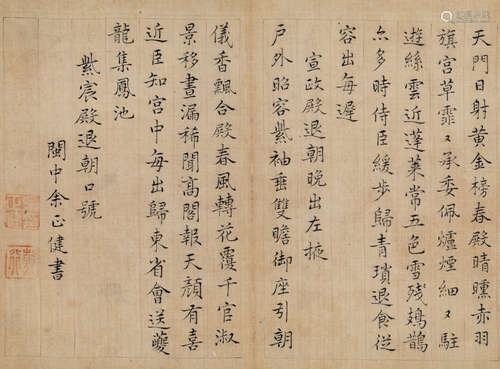 天門日射黃金榜春殿晴曛赤羽
旗宮草霏〻承委佩爐煙細〻駐
遊絲雲近蓬萊常五色雪殘鳷鵲
亦多時侍臣緩步歸青瑣退食從
容出每遲
宣政殿退朝晚出左掖
戶外昭容紫袖垂雙瞻御座引朝
儀香飄合殿春風轉花覆千官淑
景移晝漏稀聞高閣報天顏有喜
近臣知宮中每出歸東省會送夔
龍集鳳池
紫宸殿退朝口號
閩中余正健書